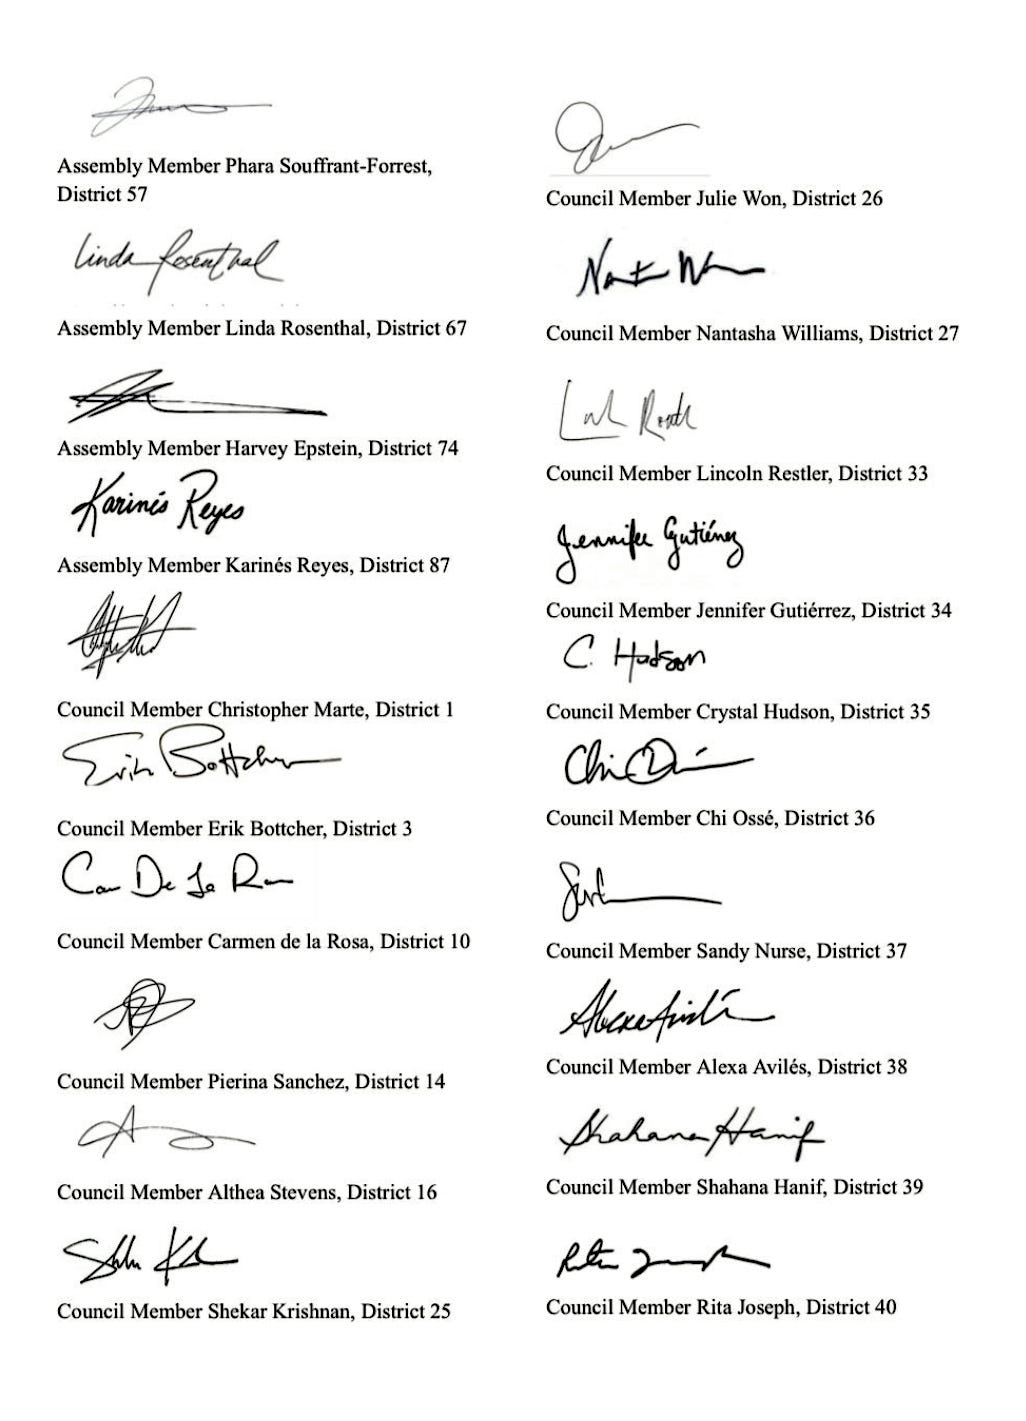 Assembly Member Phara Souffrant-Forrest,
District 57
Linda Rosenthal
Assembly Member Linda Rosenthal, District 67
Assembly Member Harvey Epstein, District 74
Karinés Reyes
Assembly Member Karinés Reyes, District 87
Council Member Christopher Marte, District 1
Erik Bottcher
Council Member Erik Bottcher, District 3
De La
Council Member Carmen de la Rosa, District 10
Council Member Pierina Sanchez, District 14
Council Member Althea Stevens, District 16
Council Member Shekar Krishnan, District 25
Council Member Julie Won, District 26
Council Member Nantasha Williams, District 27
Council Member Lincoln Restler, District 33
Jennifer Gutiérrez
Council Member Jennifer Gutiérrez, District 34
C. Hudson
Council Member Crystal Hudson, District 35
Chi
Council Member Chi Ossé, District 36
Council Member Sandy Nurse, District 37
Council Member Alexa Avilés, District 38
Shahana Hanif
Council Member Shahana Hanif, District 39
Rita
Council Member Rita Joseph, District 40